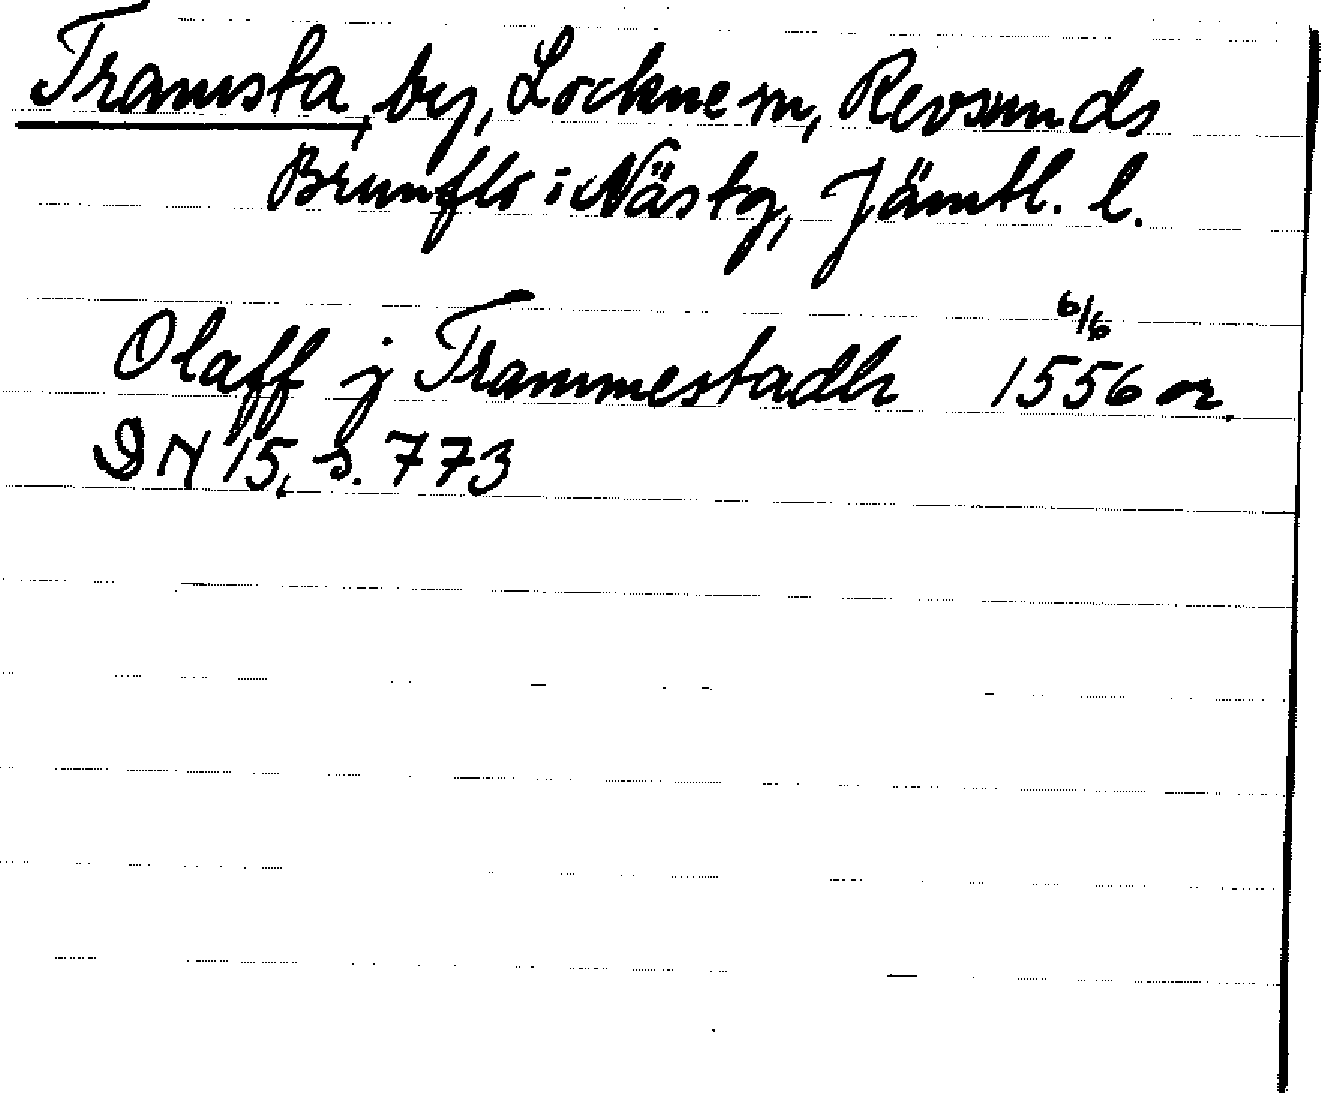 Tramsta, by, Lockne sn, Revsunds
Brunflo i Nästg, Jämtl. l.
Olaff j Trammestadh 1556 6/6 or.
DN 15, s. 773